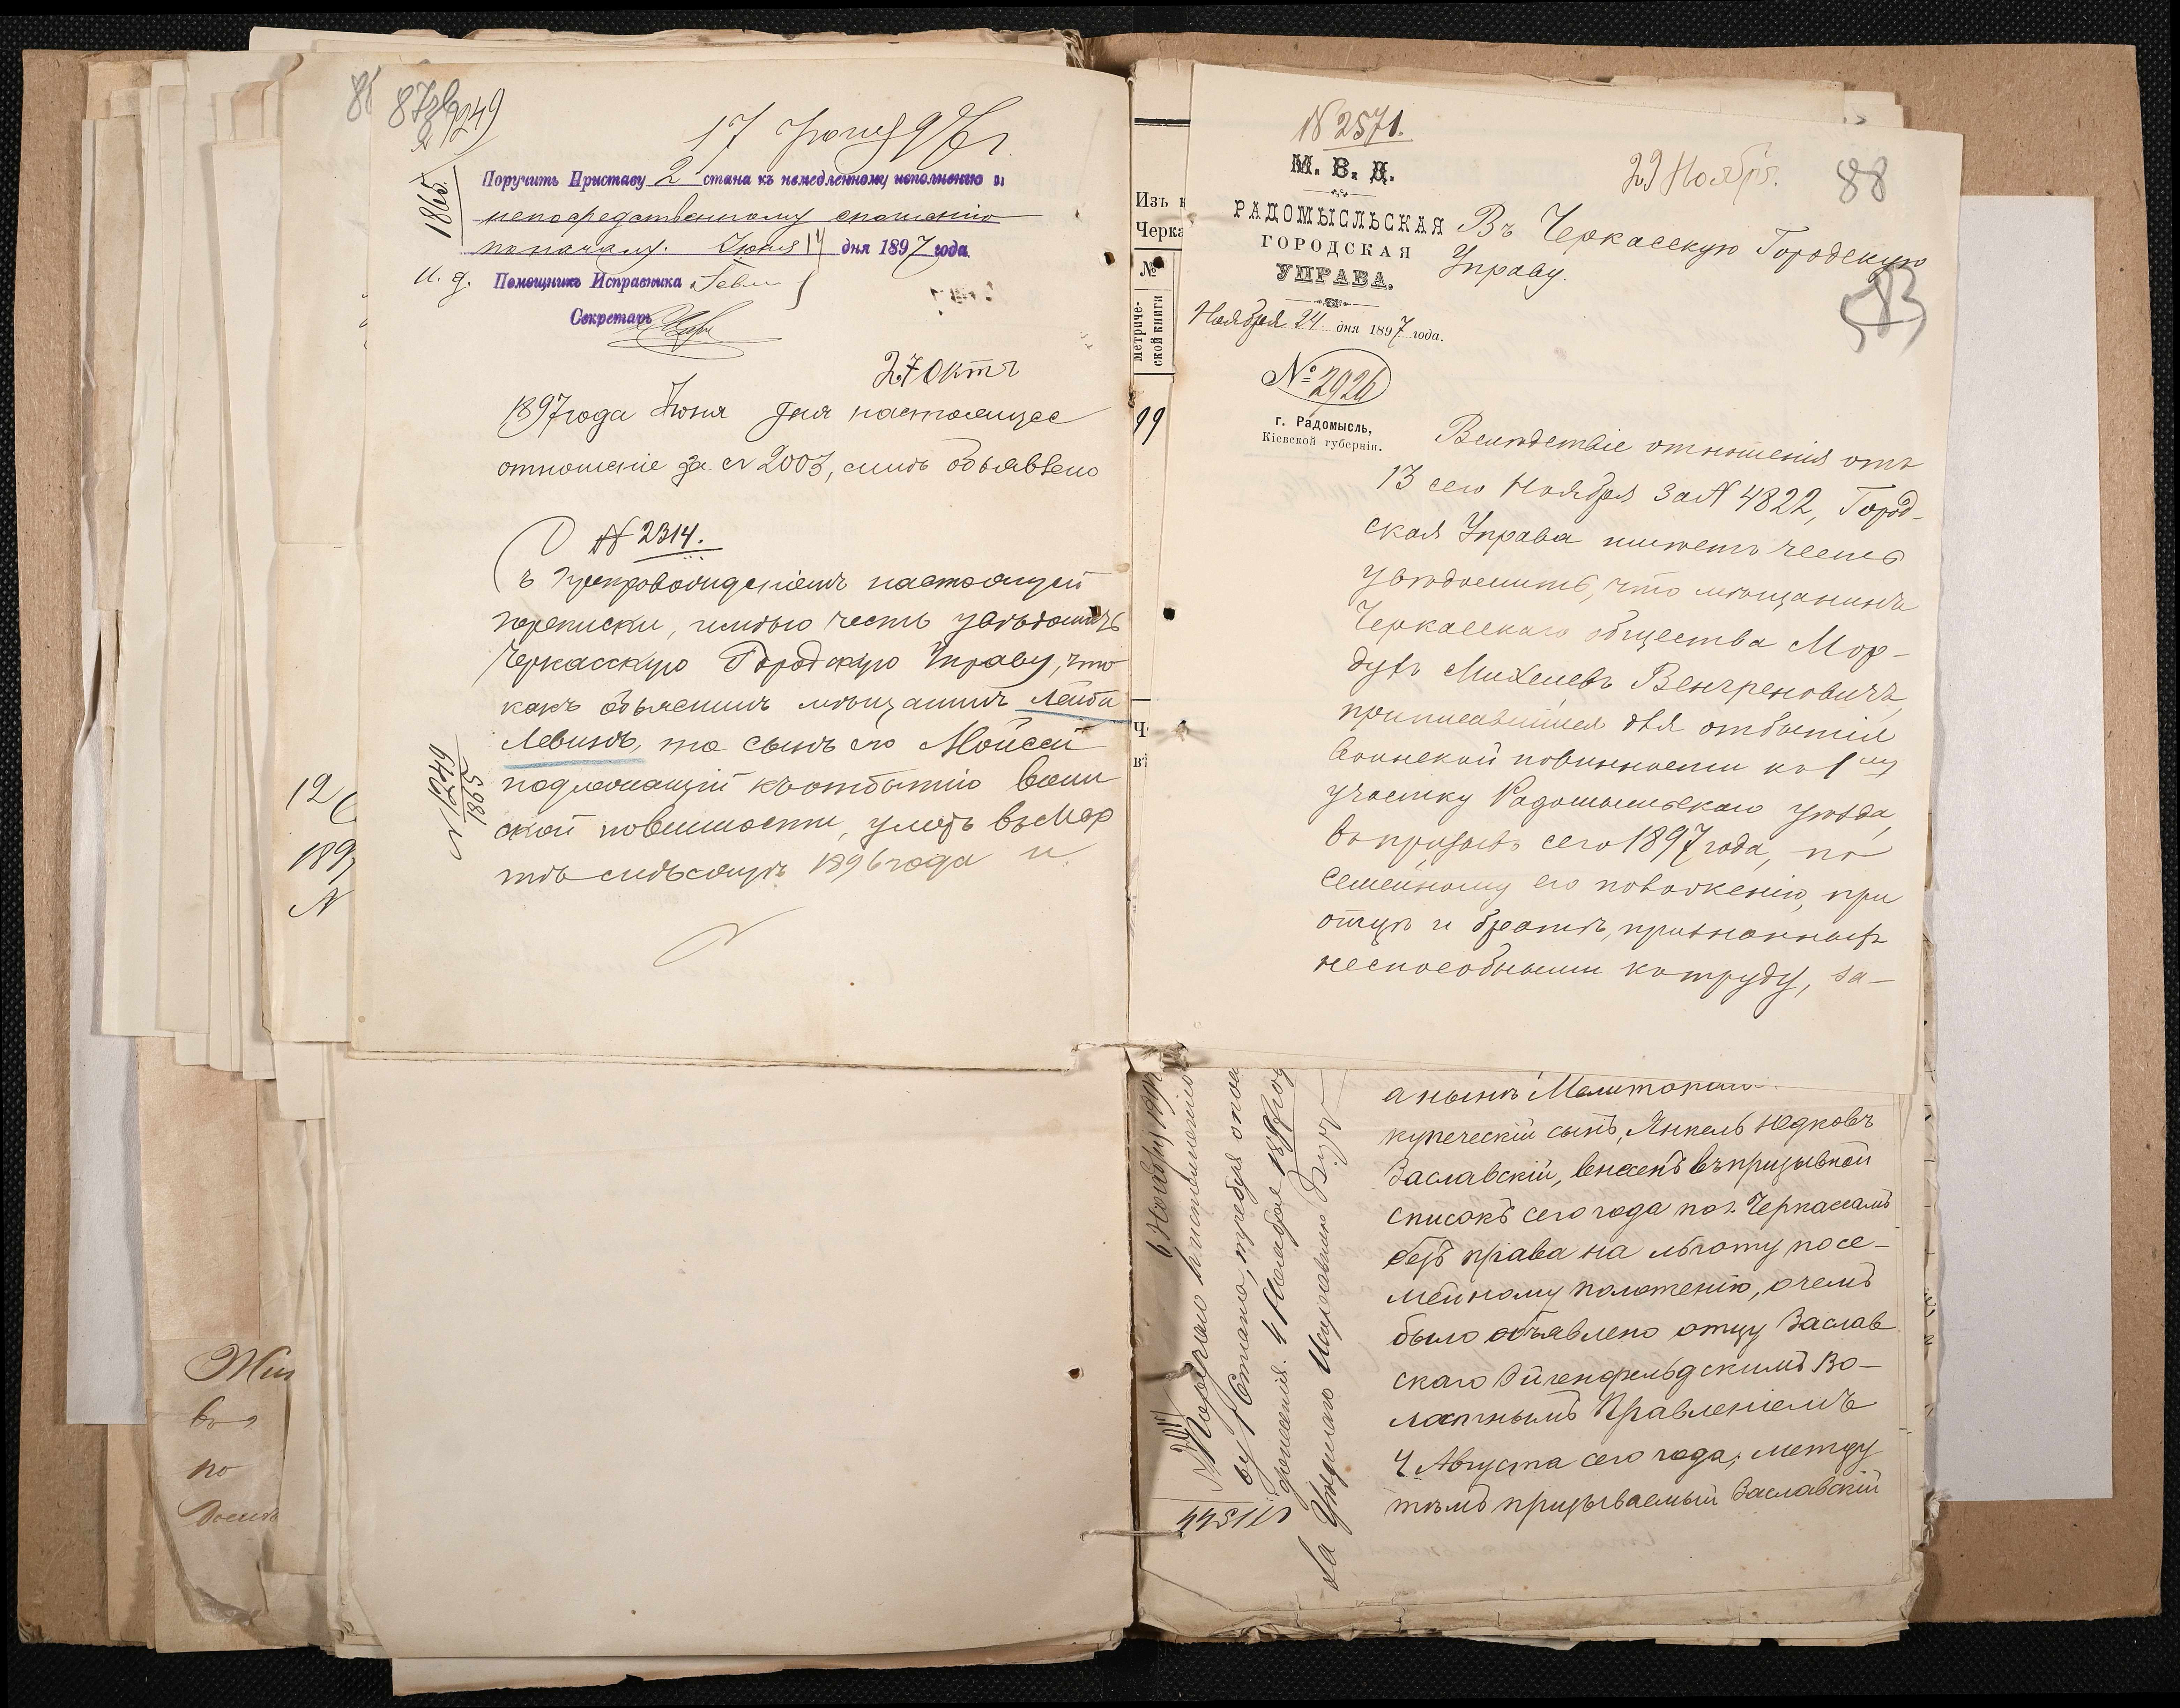 87
9249
17 Іюня 97 г.
1865.
Поручить Приставу 2 стана къ немедленному исполненію и
непосредственному сношенію
по началу. Іюня 17 дня 1897 года
И. д. Помощникъ Исправника
Секретарь
27 Окт
1897 года Іюня дня настоящее
отношеніе за № 2003, объявлено
№ 2314.
Съ препровожденіемъ настоящей
переписки, имѣю честь увѣдомить
Черкасскую Городскую Управу, что
какъ объяснилъ мѣщанинъ Лейба
Левинъ, то сынъ его Мойсей
подлежащій къ отбытію воин
ской повинности, умеръ въ Мар
тѣ мѣсяцѣ 1896 года и
№ 1249
1897
12
189
N
Жит
во
по
Изъ к
Черка
№
метриче-
ской книги
99
Ч
въ
№ 2571.
М. В. Д.
РАДОМЫСЛЬСКАЯ
ГОРОДСКАЯ
УПРАВА.
Ноября 24 дня 1897 года.
№ 2926
г. Радомысль,
Кіевской губерніи.
29 Ноябр.
88
83
Въ Черкасскую Городскую
Управу.
Вслѣдствіе отношенія отъ
13 сего Ноября за № 4822, Город-
ская Управа имѣетъ честь
увѣдомить, что мѣщанинъ
Черкасскаго общества Мор-
духъ Михелевъ Венгреновичъ,
приписавшійся для отбытія
воинской повинности къ 1му
участку Радомысльскаго уѣзда,
въ призывъ сего 1897 года, по
семейному его положенію, при
отцѣ и братѣ, признанныхъ
неспособными къ труду, за-
а нынѣ
купеческій сынъ, Янкель Юдковъ
Заславскій, внесенъ въ призывной
списокъ сего года по г. Черкасамъ
безъ права на льготу по се-
мейному положенію, о чемъ
было объявлено отцу Заслав
скаго Эйгенфельдскимъ Во-
лостнымъ Правленіемъ
4 Августа сего года; между
тѣмъ призываемый Заславскій
6 Ноября 1897
Поручаю
ву 1 Стана,
донесенія. 4 Ноября 1897 год
За Уѣзднаго